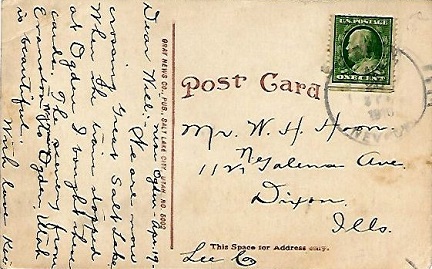 Dear Will: near Ogden - Apr. 19 -
We are now
crossing Great Salt Lake.
When the train stopped
at Ogden I bought these
cards. The scenery from
Evanston, Wyo to Ogden, Utah
is beautiful.
With love
GRAY NEWS CO., PUB., SALT LAKE CITY, UTAH, NO. 5002
U.S. POSTAGE
ONE CENT
Post Card
Mr. W. H. Hoon
112 N Galena Ave.
Dixon,
Ills.
This Space for Address only.
Lee Co